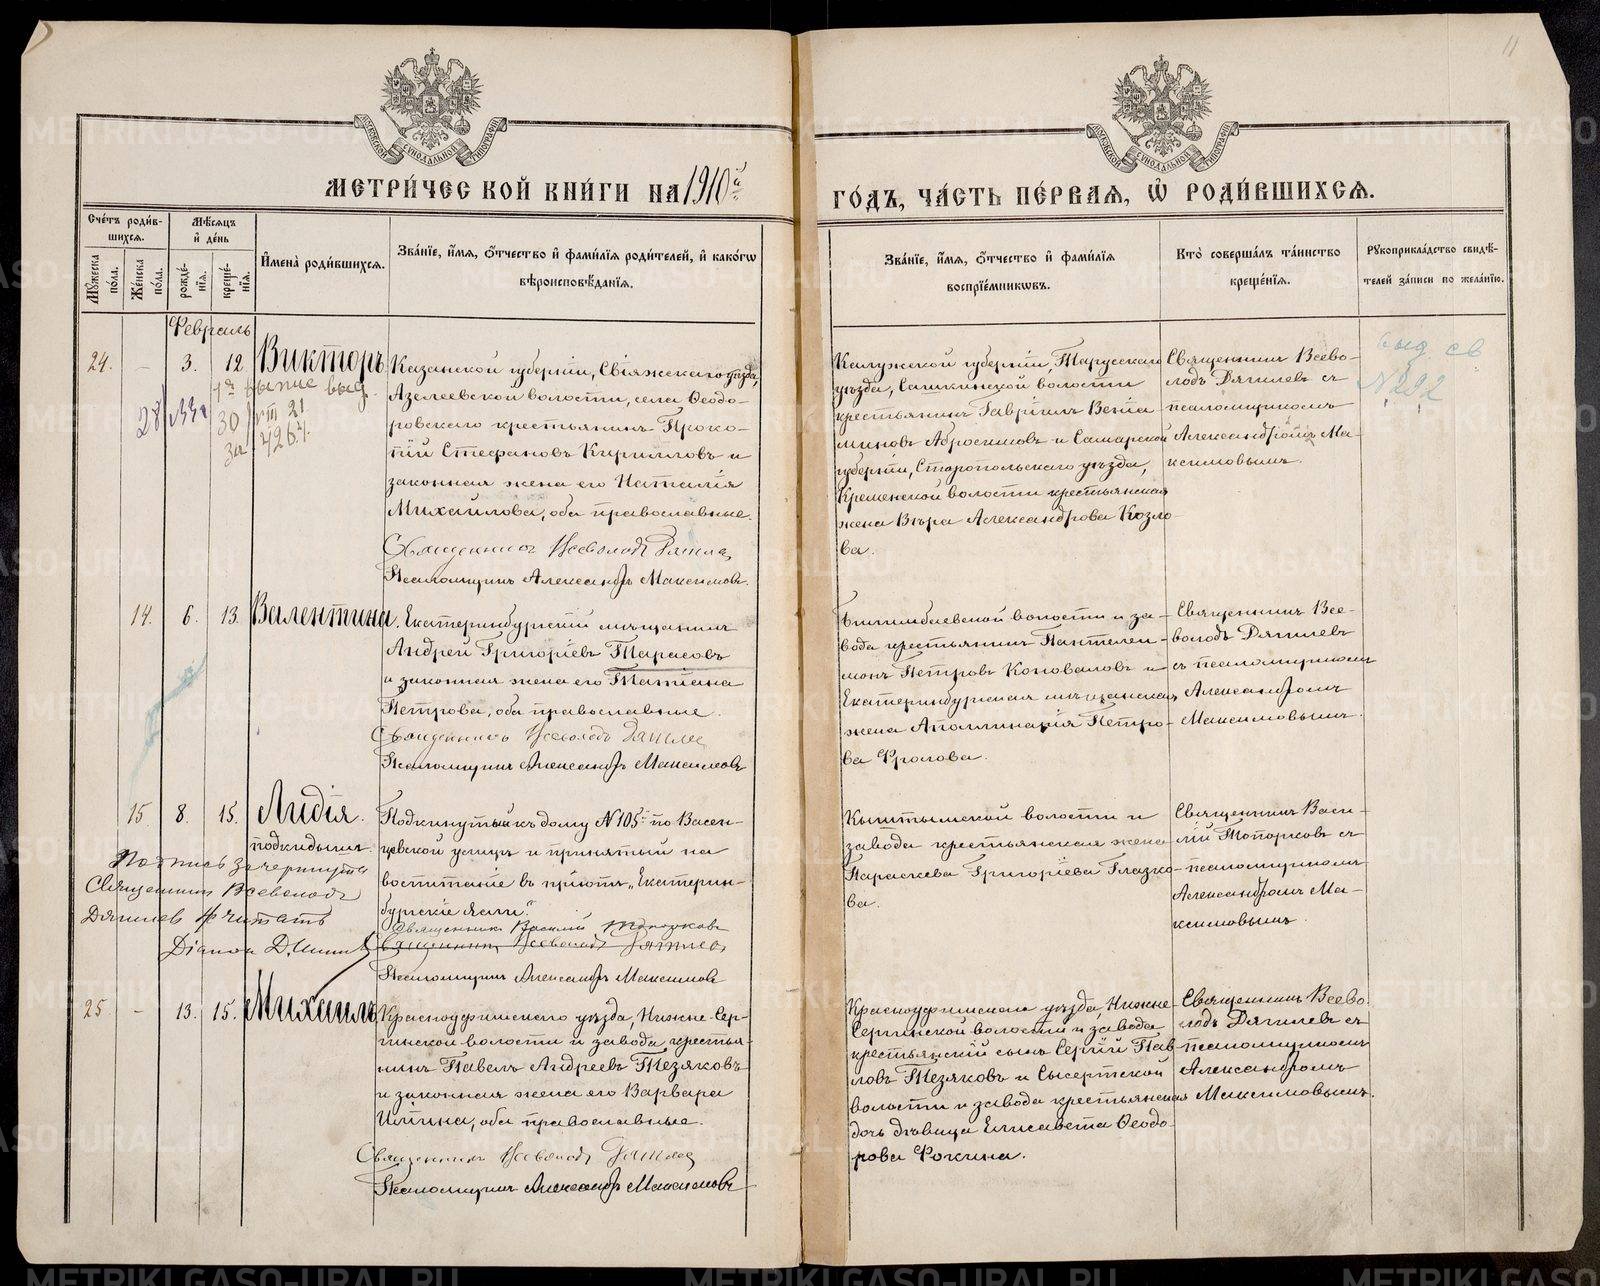 11
МОСКОВСКОЙ СѴНОДАЛЬНОЙ ТИПОГРАФІИ
МОСКОВСКОЙ СѴНОДАЛЬНОЙ ТИПОГРАФІИ
МЕТРИ́ЧЕСКОЙ КНИ́ГИ НА 1910й
ГО́ДЪ, ЧА́СТЬ ПЕ́РВАЯ, Ѡ҆ РОДИ́ВШИХСЯ.
Сче́тъ роди́в-
шихся.
Мꙋжеска по́ла.
Же́нска по́ла.
Мѣ́сяцъ
и҆ де́нь
рожде́-
нїя.
креще́-
нїя.
И҆мена̀ роди́вшихся.
Зва́нїе, и҆́мя, ѻ҆́тчество и҆ фами́лїя роди́телей, и҆ како́гѡ
вѣроисповѣ́данїя.
Зва́нїе, и҆́мя, ѻ҆́тчество и҆ фами́лїя
воспрїе́мникѡвъ.
Кто̀ соверша́лъ та́инство
креще́нїя.
Рꙋкоприкла́дство свидѣ́-
телей за́писи по жела́нїю.
Февраль
24. - 3. 12 Викторъ
Казанской губерніи, Свіяжскаго уѣзда,
Азелеевской волости, села Ѳеодо-
ровскаго крестьянинъ Проко-
пій Стефановъ Кирилловъ и
законная жена его Наталія
Михайлова, оба православные.
Священникъ Всеволодъ Дягилев
Псаломщикъ Александръ Максимовъ.
30/VIII 21
за 4267.
Калужской губерніи, Тарусскаго
уѣзда, Сашкинской волости
крестьянинъ Гавріилъ Веніа-
миновъ Абросимовъ и Самарской
губерніи, Ставропольскаго уѣзда,
Кременской волости крестьянская
жена Вѣра Александрова Козло-
ва.
Священникъ Всево-
лодъ Дягилевъ съ
псаломщикомъ
Александромъ Ма-
ксимовымъ.
выд. св
№ 292
14. 6. 13. Валентина.
Екатеринбургскій мѣщанинъ
Андрей Григоріевъ Тарасовъ
и законная жена его Татіана
Петрова, оба православные.
Священникъ Всеволодъ Дягилев
Псаломщикъ Александръ Максимовъ
Билимбаевской волости и за-
вода крестьянинъ Пантелеи-
монъ Петровъ Коноваловъ и
Екатеринбургская мѣщанская
жена Аполлинарія Петро-
ва Фролова.
Священникъ Все-
володъ Дягилевъ
съ псаломщикомъ
Александромъ
Максимовымъ.
15 8. 15. Лидія.
подкидышъ.
Подкинутый къ дому № 105й по Васен-
цовской улицѣ и принятый на
воспитаніе въ пріютъ „Екатерин-
бургскіе Ясли“.
Священникъ Василій Топорковъ
Священникъ Всеволодъ Дягилев
Псаломщикъ Александръ Максимов
Подпись зачеркнута
Священникъ Всеволодъ
Дягилев # читать
Кыштымской волости и
завода крестьянская жена
Параскева Григоріева Глазко-
ва.
Священникъ Васи-
лій Топорковъ съ
псаломщикомъ
Александромъ Ма-
ксимовымъ.
25 - 13. 15. Михаилъ
Красноуфимскаго уѣзда, Нижне-Сер-
гинской волости и завода крестья-
нинъ Павелъ Андреевъ Тезяковъ
и законная жена его Варвара
Ильина, оба православные.
Священникъ Всеволодъ Дягилев
Псаломщикъ Александръ Максимовъ
Красноуфимскаго уѣзда, Нижне-
Сергинской волости и завода
крестьянскій сынъ Сергій Пав-
ловъ Тезяковъ и Сысертской
волости и завода крестьянская
дочь дѣвица Елисавета Ѳеодо-
рова Фокина.
Священникъ Всево-
лодъ Дягилевъ съ
псаломщикомъ
Александромъ
Максимовымъ.
METRIKI.GASO-URAL.RU